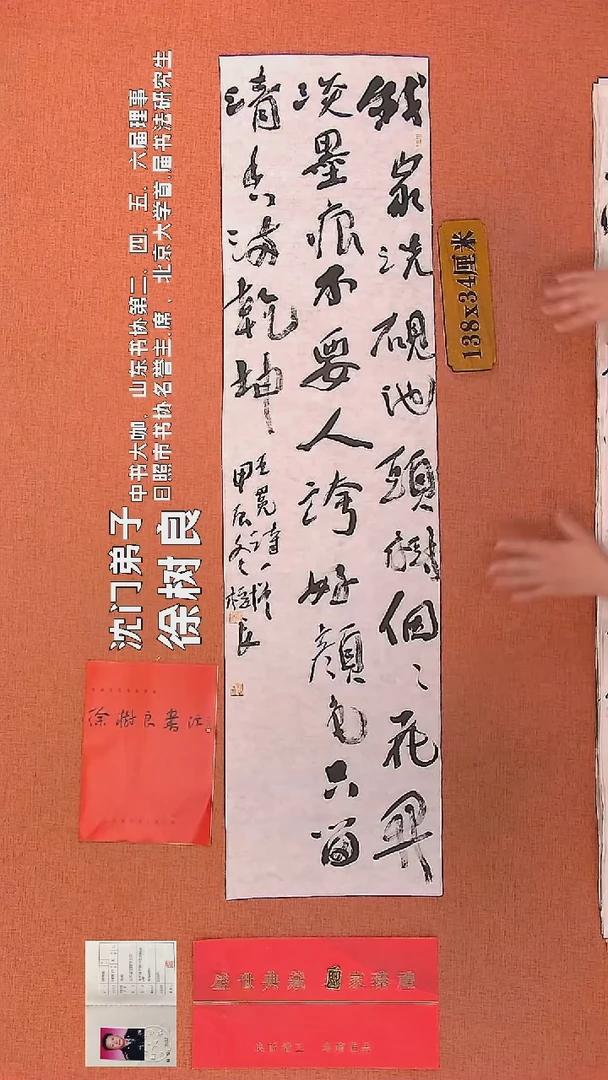 我家洗硯池頭樹個〻花開
淡墨痕不要人誇好顏色只留
清氣滿乾坤
王冕詩一首
甲辰冬 樹良
138x34厘米
沈门弟子
徐树良
中书大咖、山东书协第二、四、五、六届理事
日照市书协名誉主席、北京大学首届书法研究生
徐樹良書法